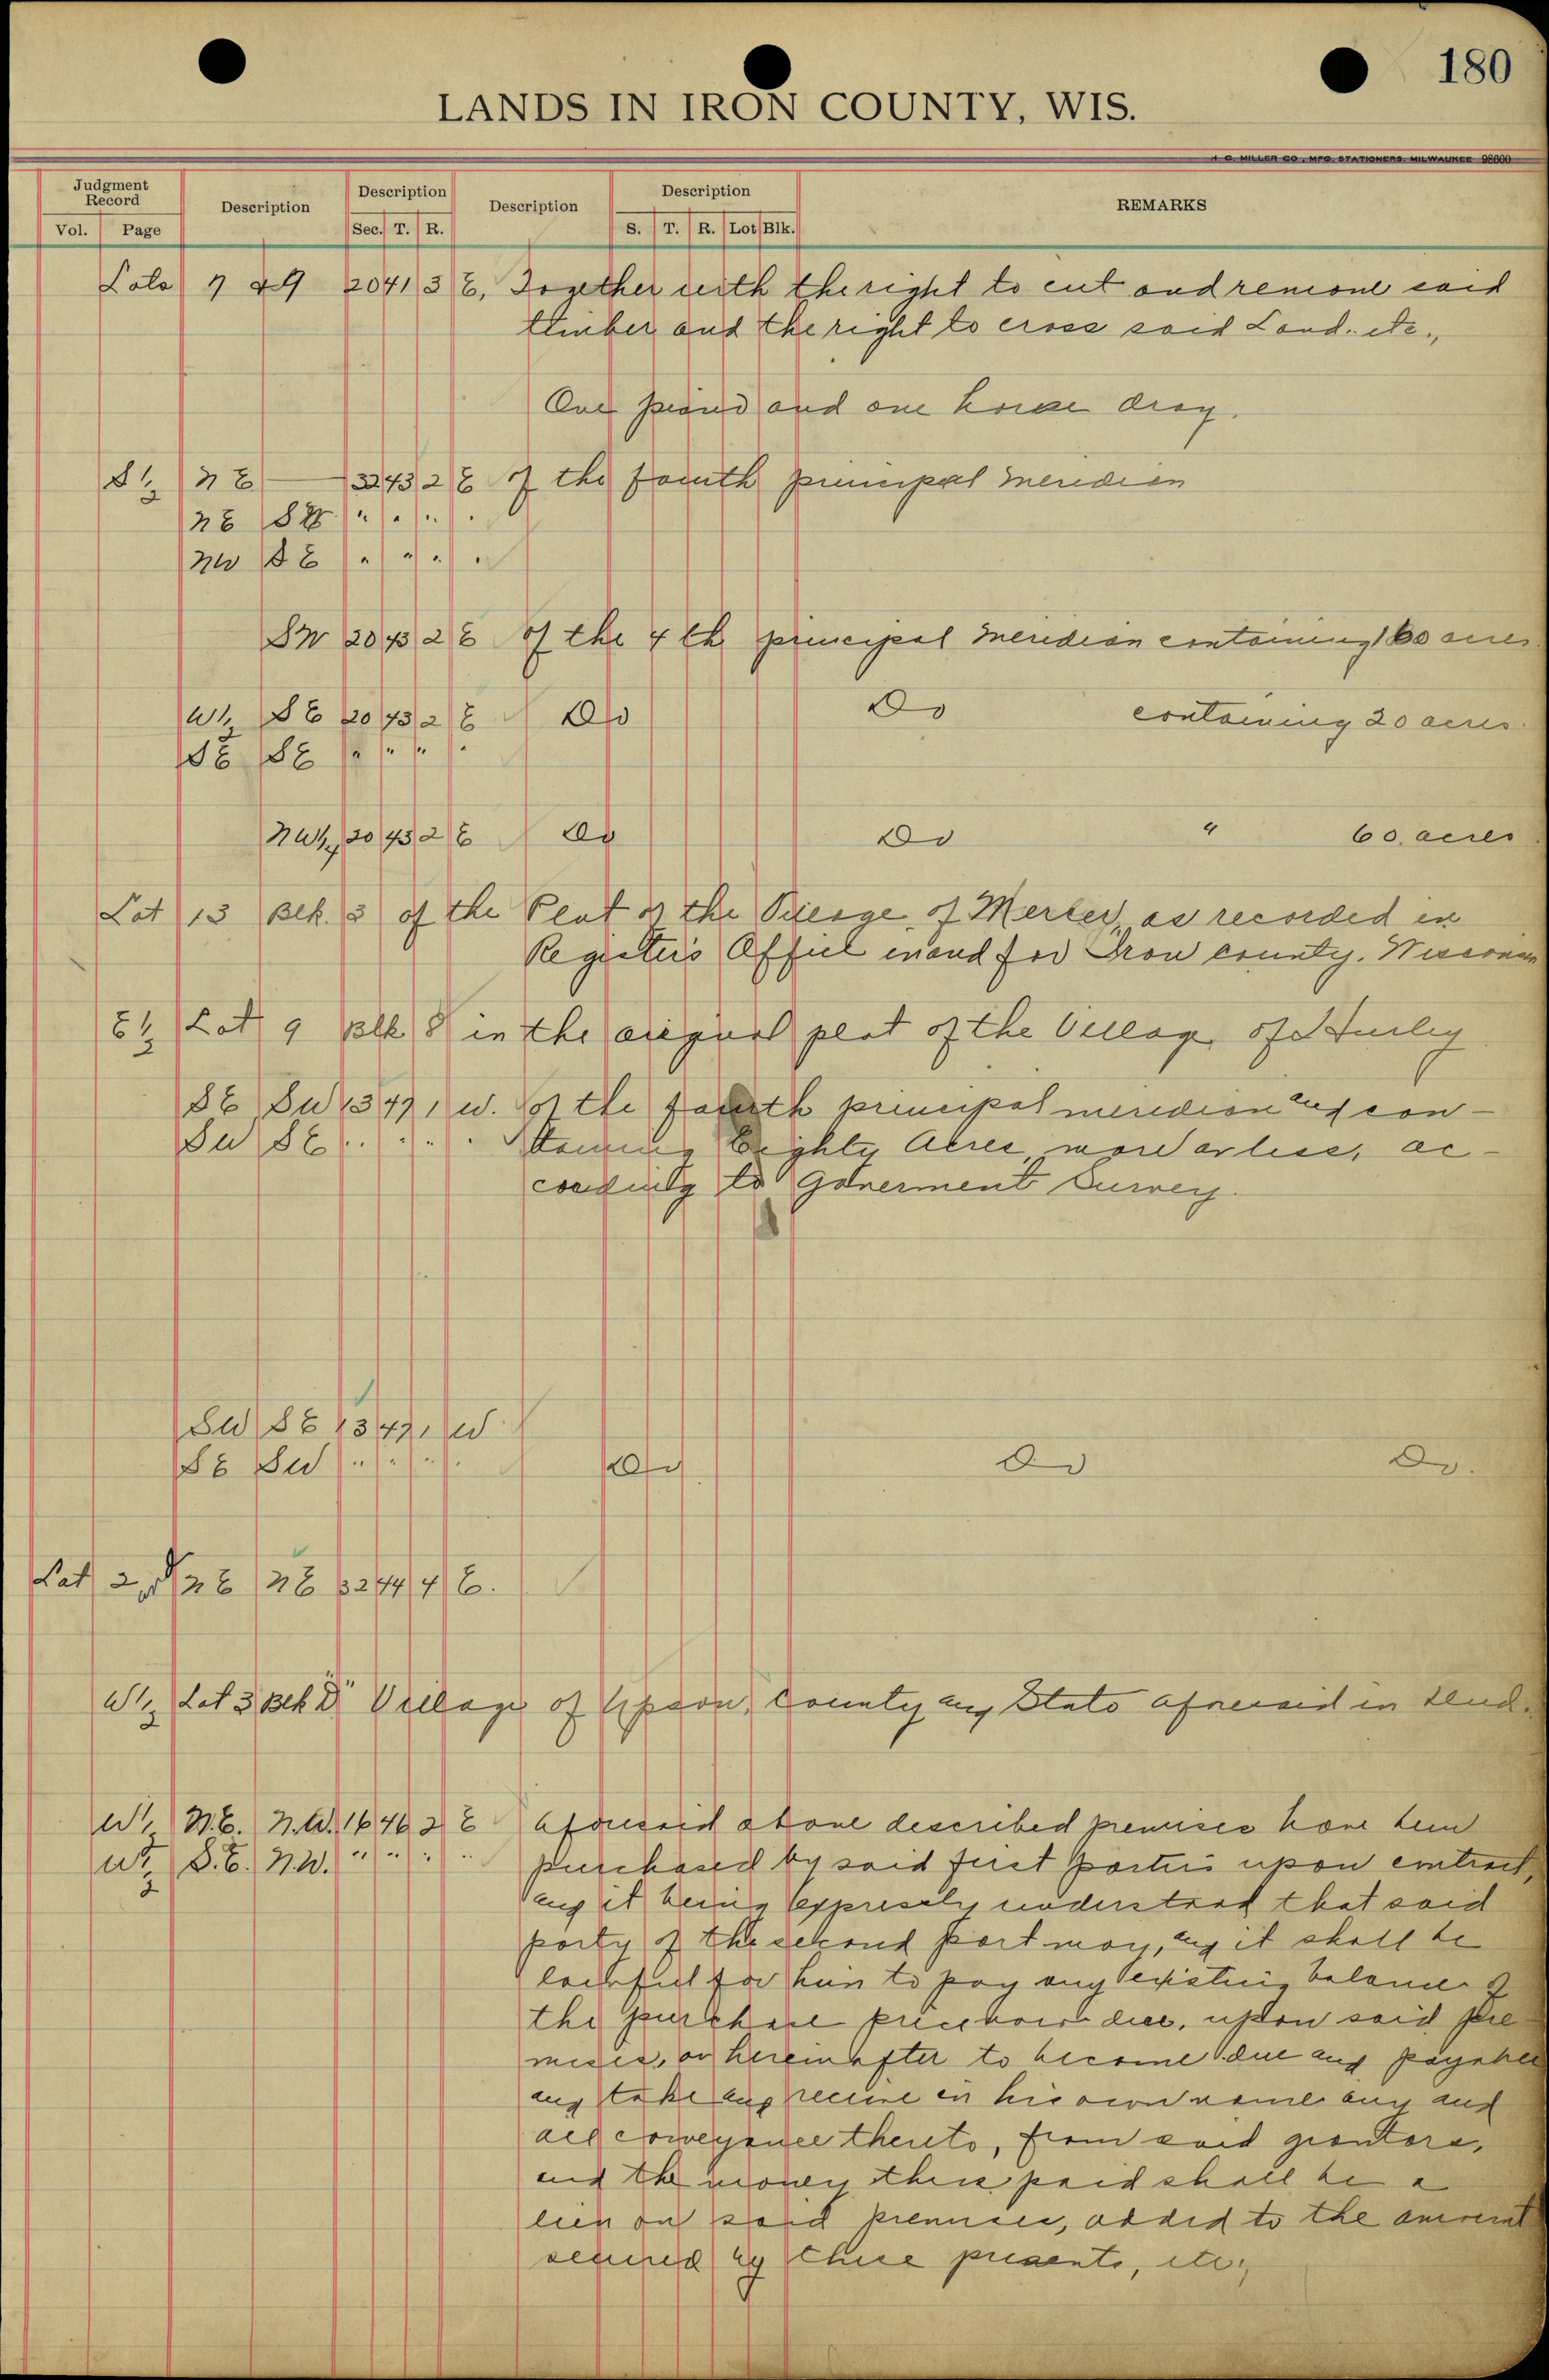 180
LANDS IN IRON COUNTY, WIS.
H. C. MILLER CO., MFG. STATIONERS, MILWAUKEE 98600
Judgment Record Description Description Description Description REMARKS
Vol. Page Sec. T. R. S. T. R. Lot Blk.
Lots 7 & 9 20 41 3 E, Together with the right to cut and remove said
timber and the right to cross said Land. etc.,
One piano and one horse dray.
S 1/2 N E 32 43 2 E of the fourth principal meridian
N E S W " " " "
N W S E " " " "
S W 20 43 2 E of the 4 th principal meridian containing 160 acres
W 1/2 S E 20 43 2 E Do Do containing 20 acres.
S E S E " " " "
N W 1/4 20 43 2 E Do Do " 60 acres
Lot 13 Blk. 3 of the Plat of the Village of Mercer, as recorded in
Register's Office in and for Iron county. Wisconsin
E 1/2 Lot 9 Blk 8 in the original plat of the Village of Hurley
S E S W 13 47 1 W. of the fourth principal meridian and con-
S W S E " " " " taining Eighty Acres, more or less, ac-
cording to Goverment Survey.
S W S E 13 47 1 W
S E S W " " " " Do Do Do.
Lot 2, N E N E 32 44 4 E.
W 1/2 Lot 3 Blk "D" Village of Upson, County and State aforesaid in deed.
W 1/2 N.E. N.W. 16 46 2 E Aforesaid above described premises have been
W 1/2 S.E. N.W. " " " " purchased by said first parties upon contract,
and it being expressly understood that said
party of the second part may, and it shall be
lawful for him to pay any existing balance of
the purchase price now due, upon said pre-
mises, or hereinafter to become due and payable
and take and receive in his own name any and
all conveyance thereto, from said grantors,
and the money thus paid shall be a
lien on said premises, added to the amount
secured by these presents, etc.,